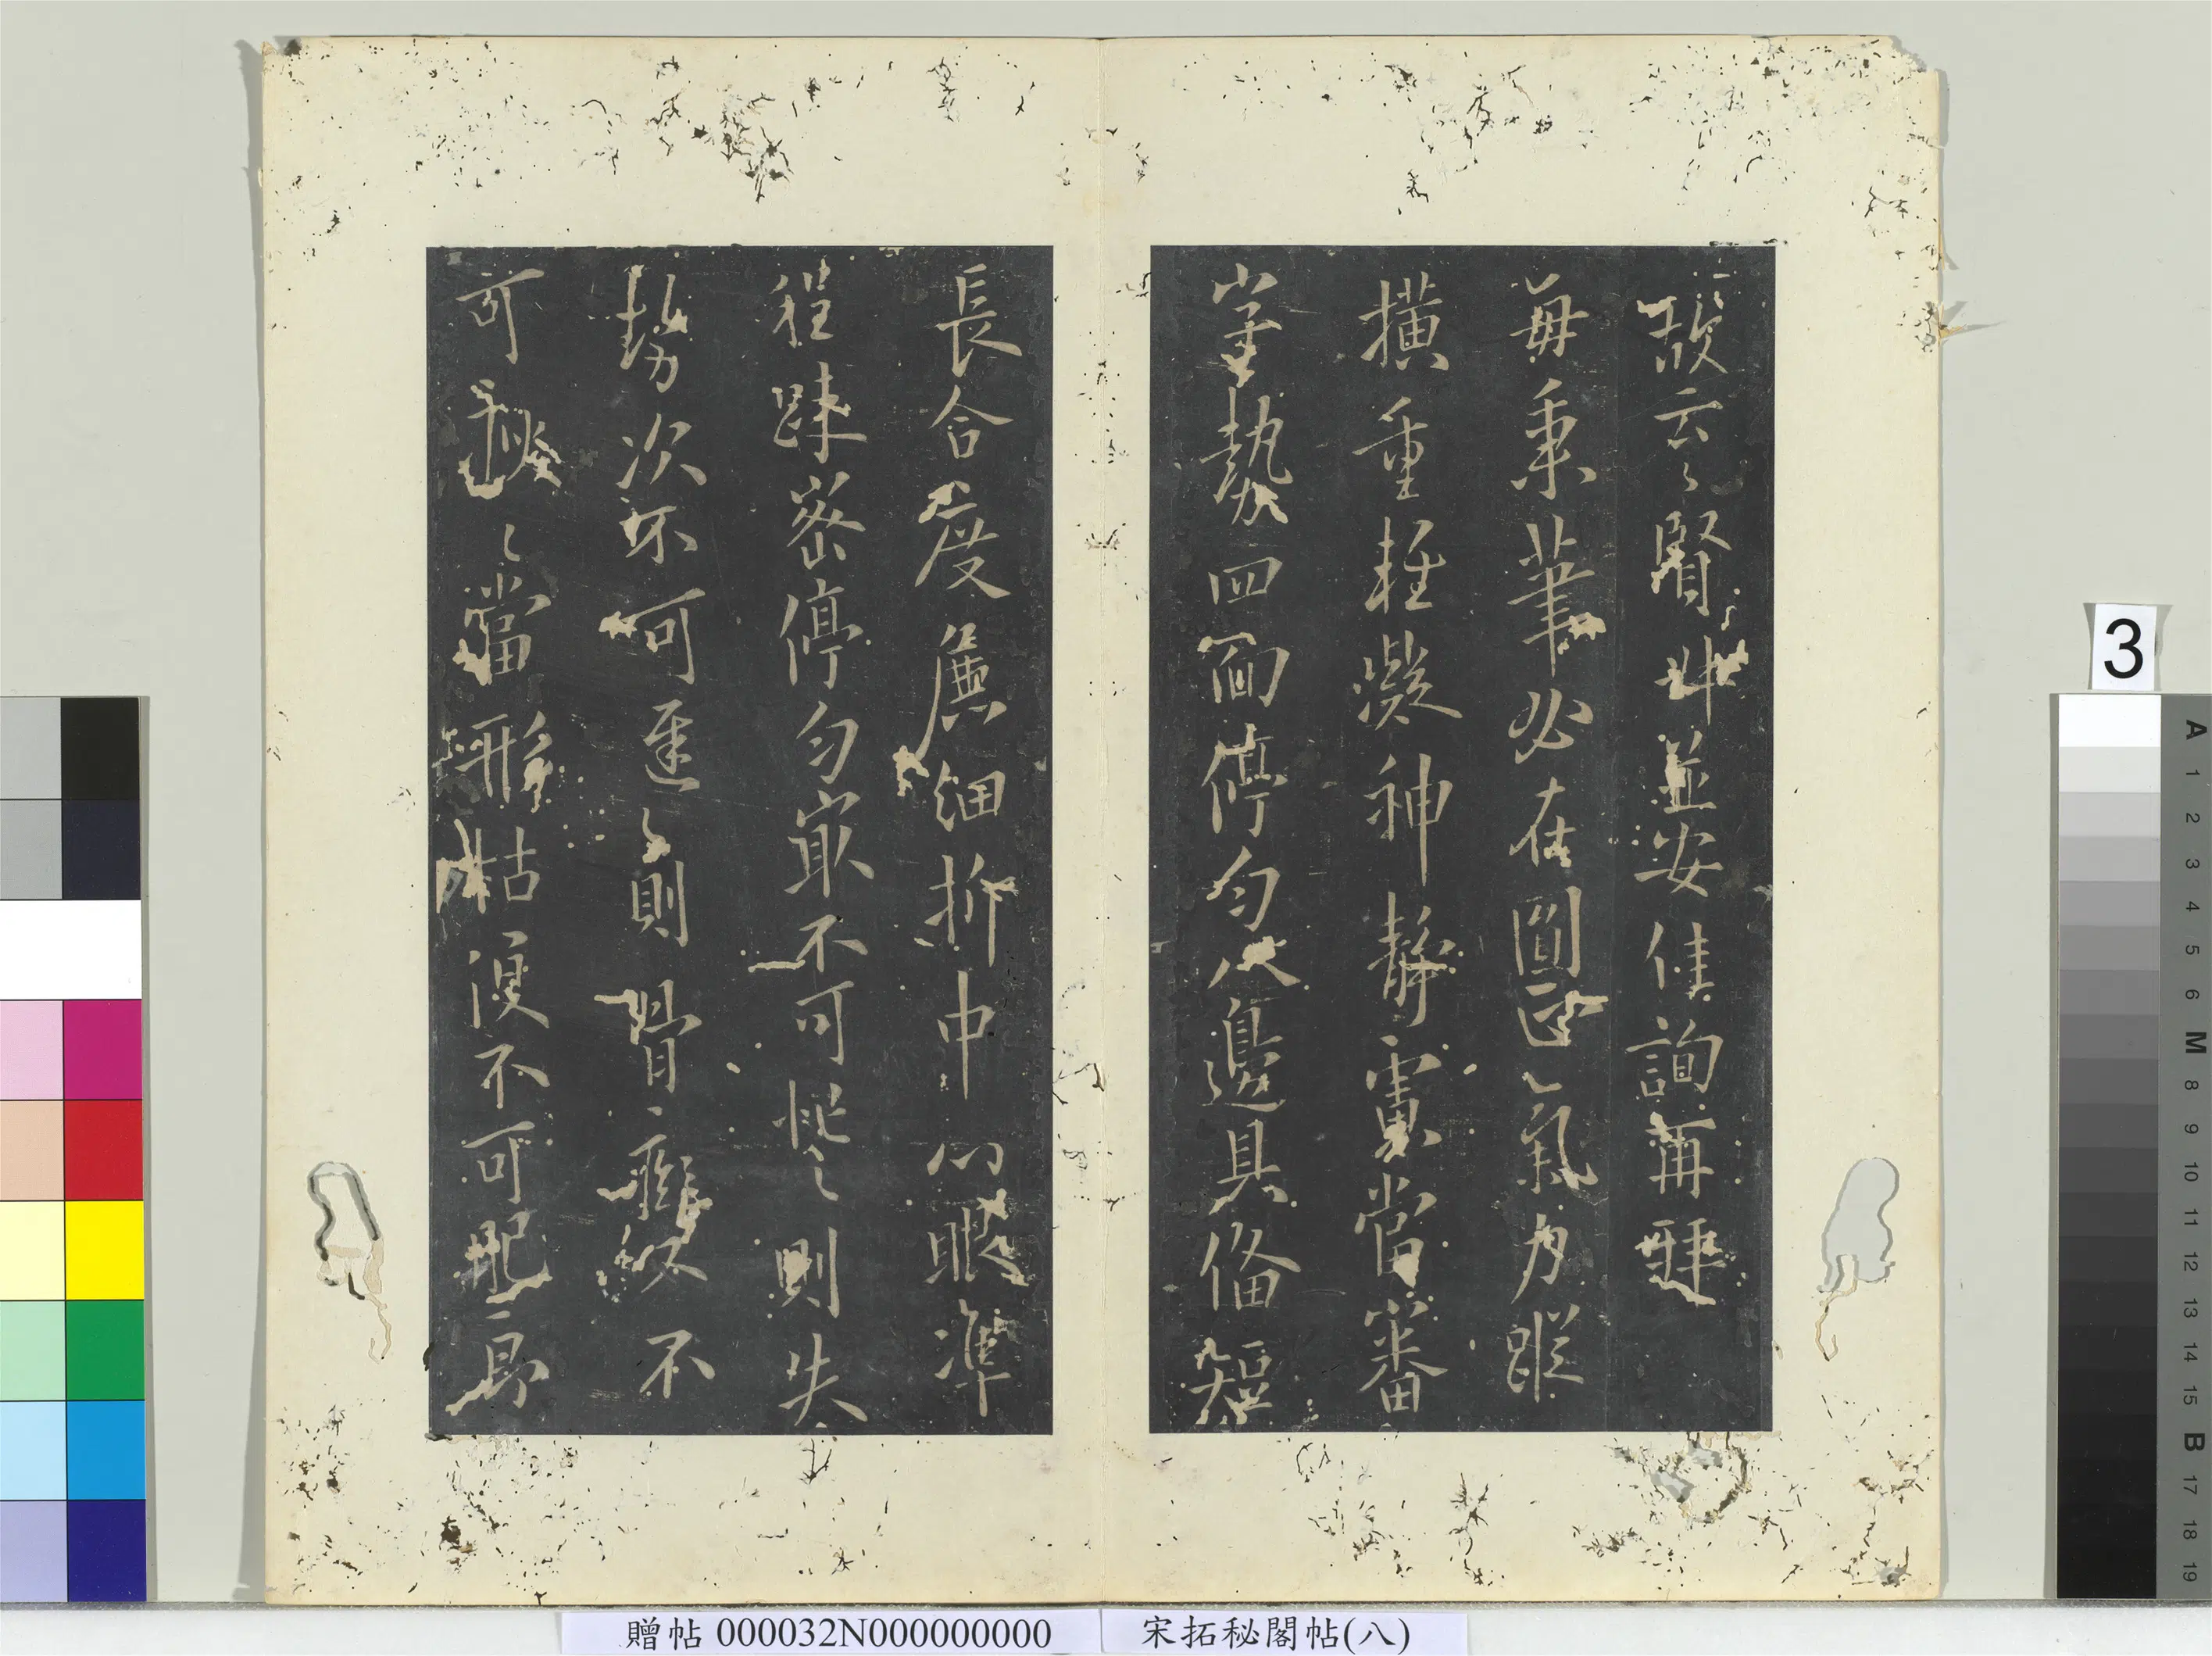 故云々賢並安佳詢再拜
每秉筆必在圓正氣力蹤
橫重輕凝神靜慮當審
字勢四面停勻八邊具備短
長合度麄細折中心眼準
程踈密停勻冣不可忙々則失
勢次不可遲々則骨癡又不
可瘦々當形枯復不可肥々即
3
A 1 2 3 4 5 6 M 8 9 10 11 12 13 14 15 B 17 18 19
贈帖 000032N000000000 宋拓秘閣帖(八)